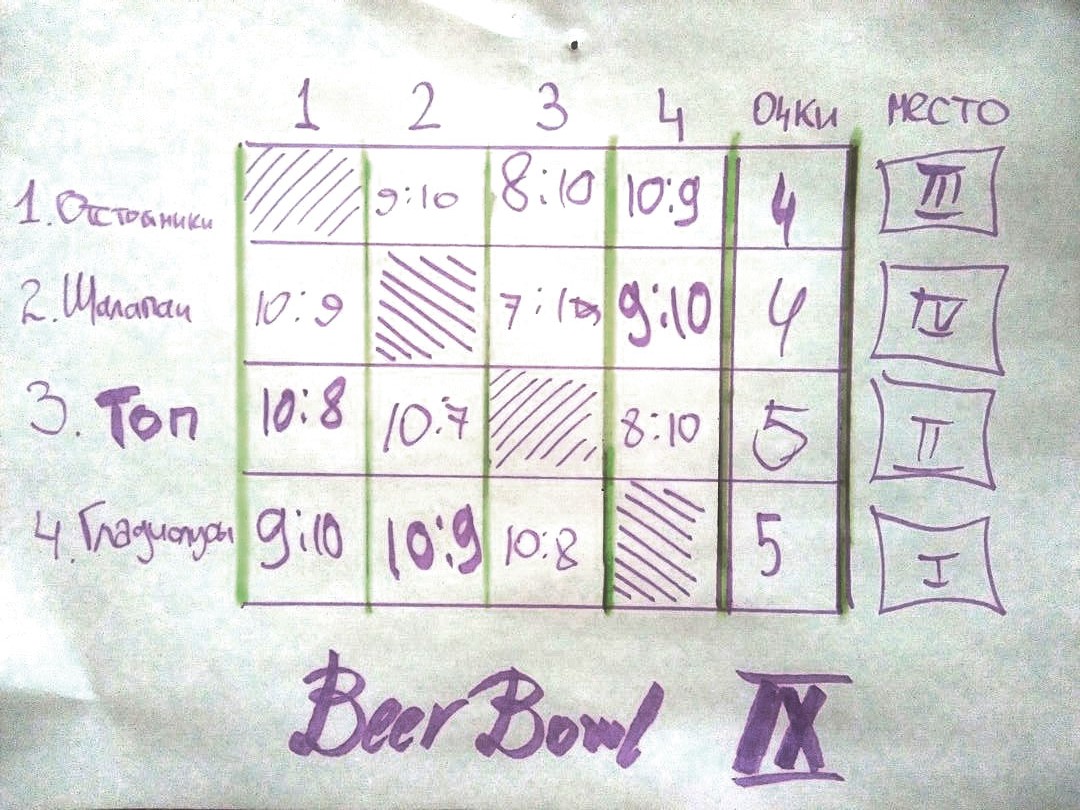 1 2 3 4 очки место
1. Отстойники 9:10 8:10 10:9 4 III
2. Шалапаи 10:9 7:10 9:10 4 IV
3. Топ 10:8 10:7 8:10 5 II
4. Гладиолусы 9:10 10:9 10:8 5 I
Beer Bowl IX